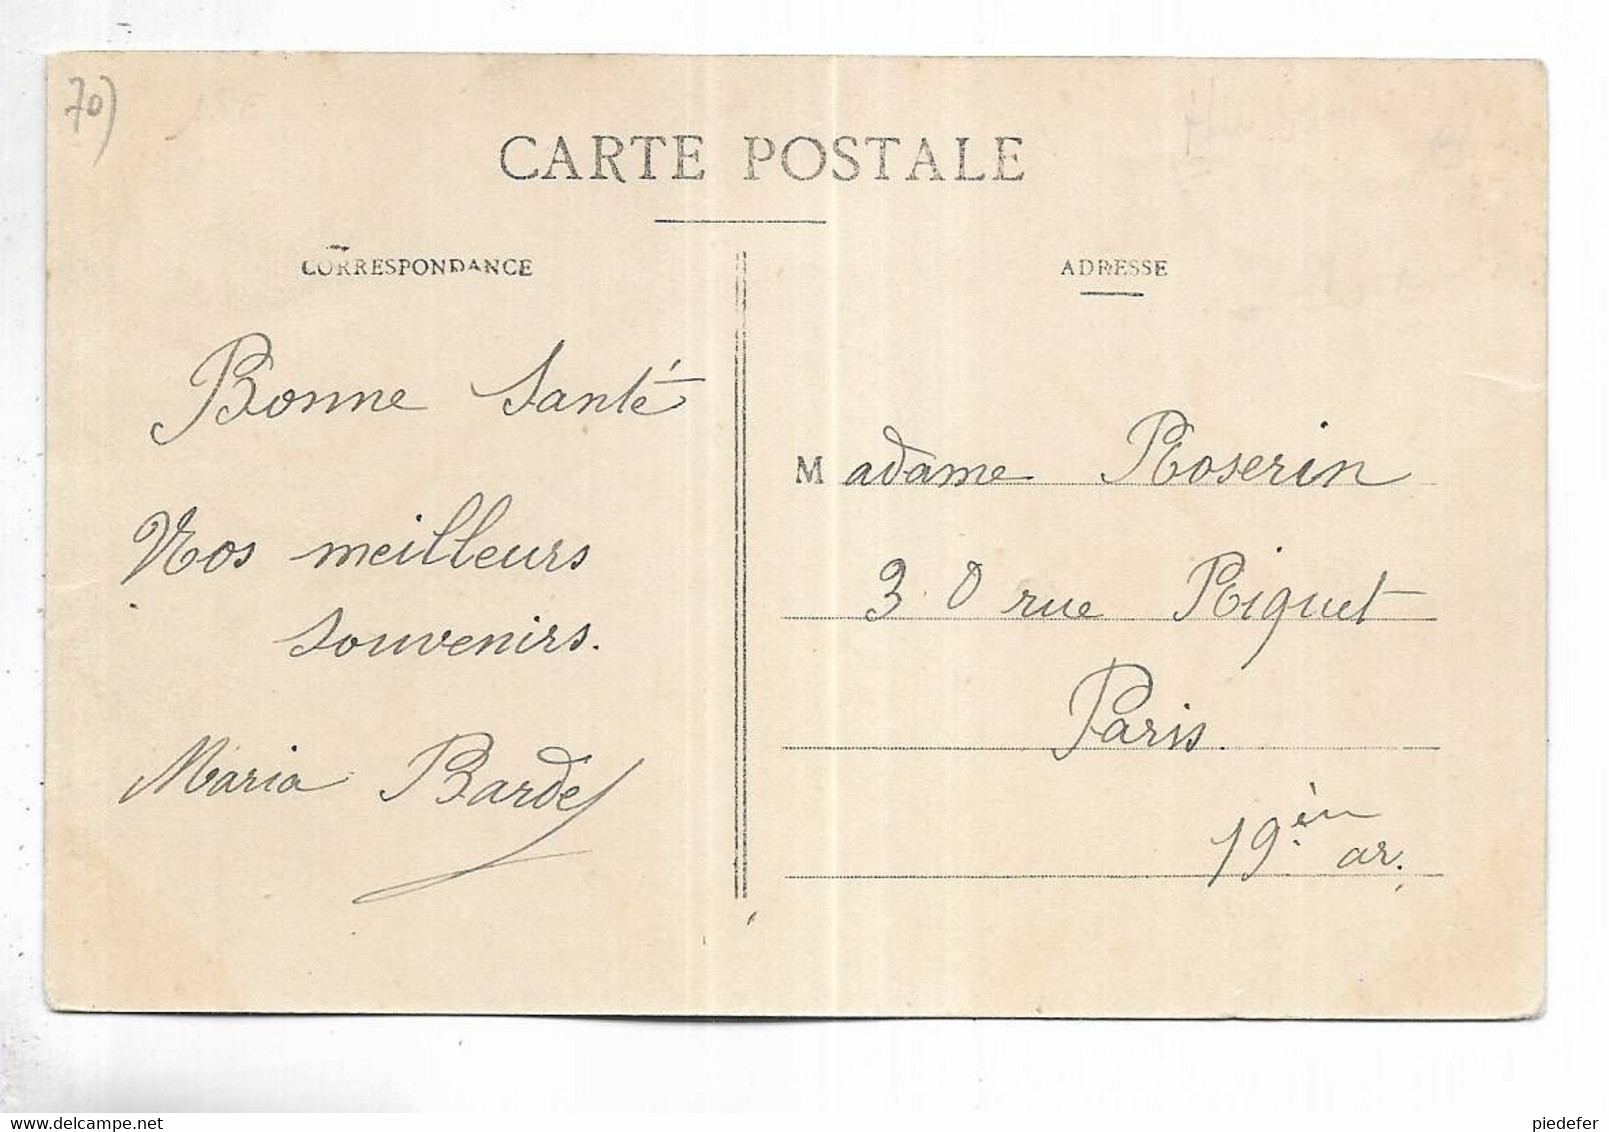 70)
CARTE POSTALE
CORRESPONDANCE
Bonne Santé
Nos meilleurs
souvenirs.
Maria Bardel
ADRESSE
Madame Roserin
30 rue Riquet
Paris.
19èm ar.
delcampe.net
piedefer